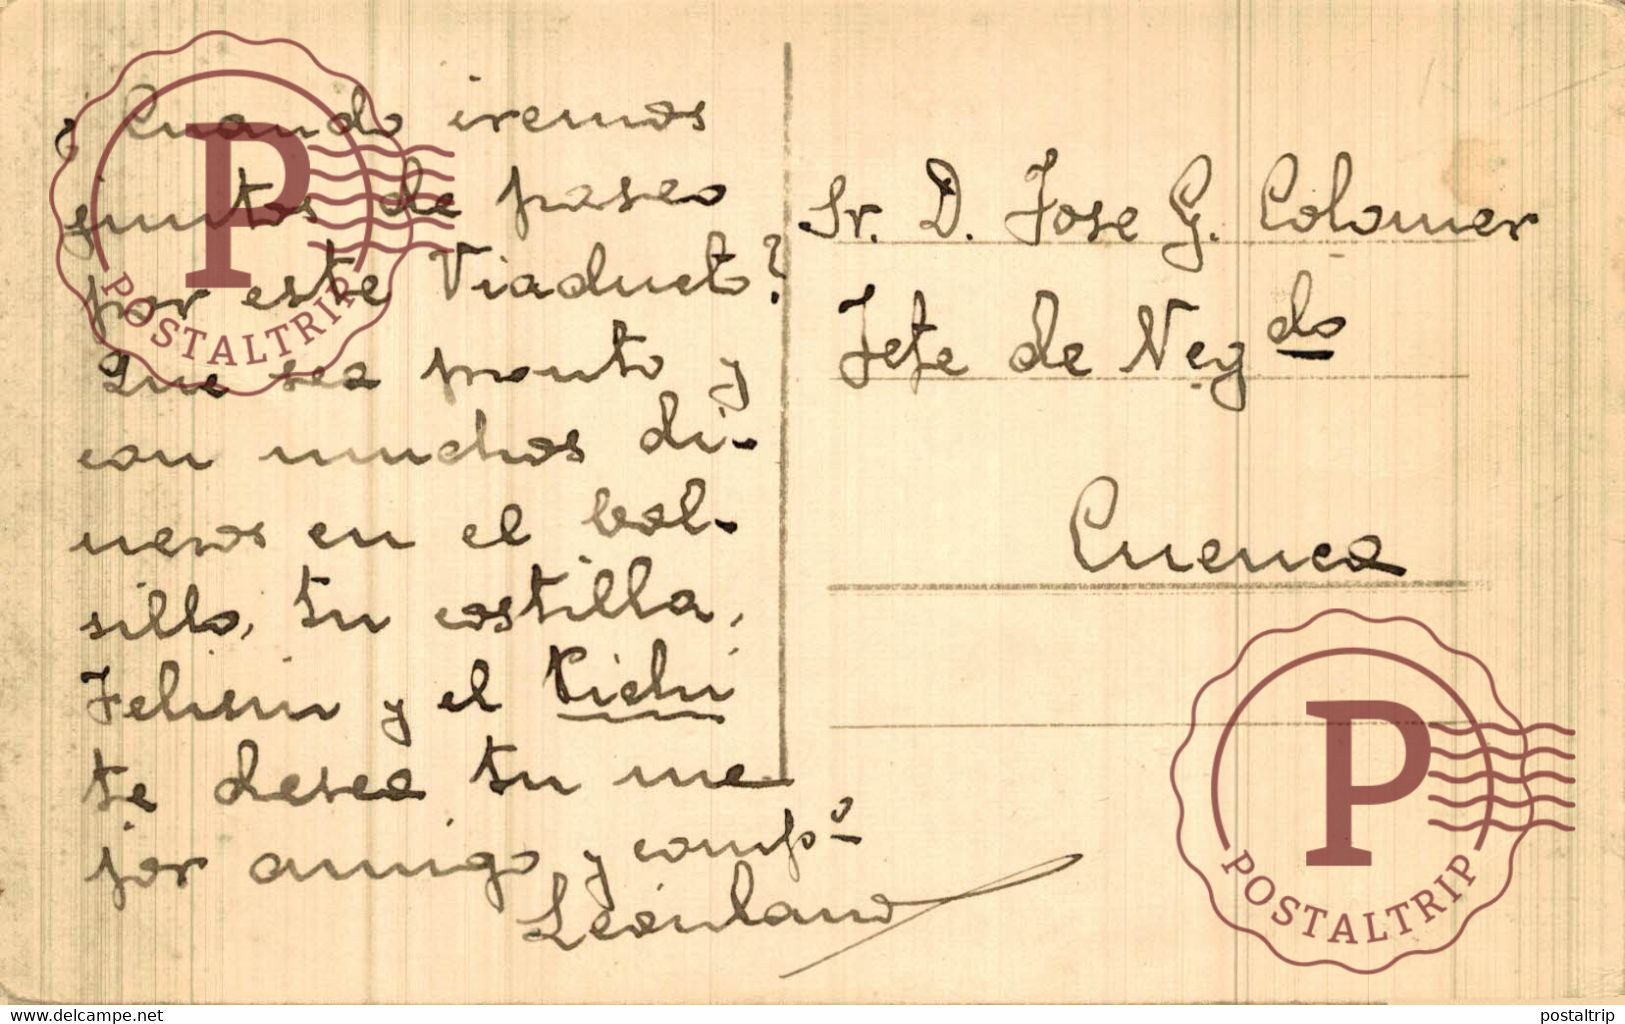 ¿Cuando iremos
juntos de paseo
por este Viaducto?
Que sea pronto y
con muchos di-
neros en el bol-
sillo, tu costilla,
y el Pichi
te desea tu me
jor amigo y compº
Sr. D. Jose G. Colomer
Jefe de Negdo
Cuenca
POSTALTRIP
POSTALTRIP
www.delcampe.net
postaltrip